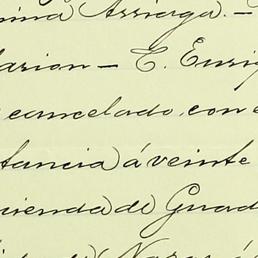 nina Arriaga. —
larion — E. Enriq
cancelado, con e
tancia) á veinte
cienda de Guad